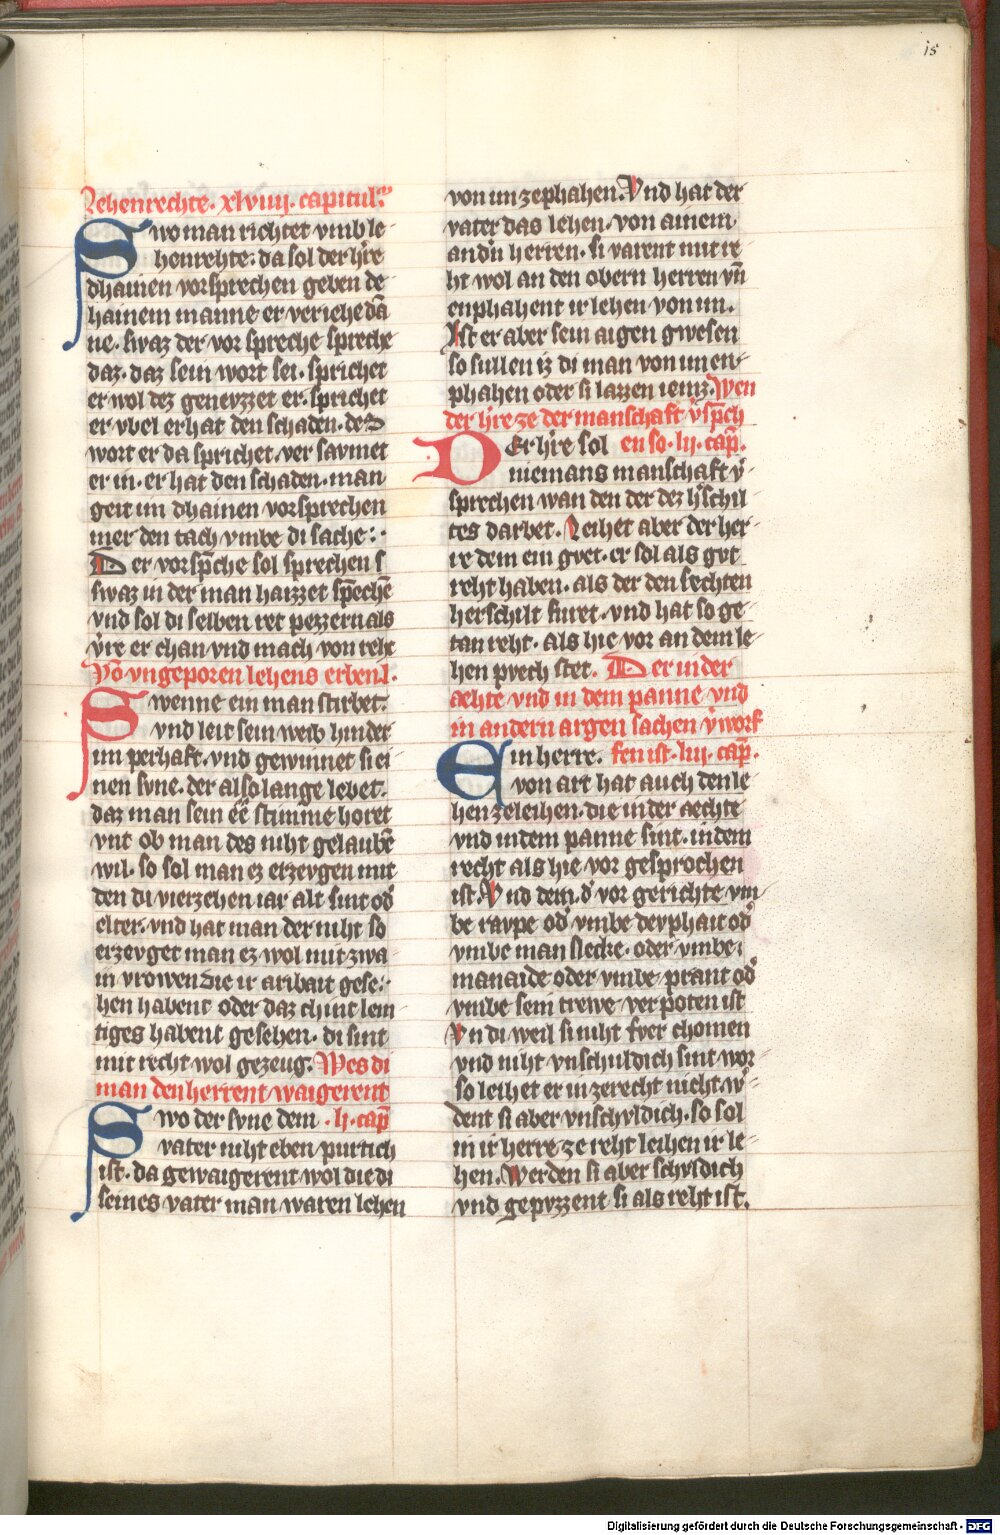 15
Lehenrechte. xlviiij. capitul.
Swo man richtet vmb le
henrehte. da sol der h're
dhainen vorsprechen geben de
hainem manne er veriehe dā
ne. swaz der vor spreche spreche
daz. daz sein wort sei. sprichet
er wol dez genevzzet er. sprichet
er vbel er hat den schaden. des
wort er da sprichet. ver savmet
er in. er hat den schaden. man
geit im dhainen vorsprechen
mer den tach vmbe di sache.
Der vorsp̄che sol sprechen
swaz in der man haizzet sp̄echē
vnd sol di selben ret pezzern als
v're er chan vnd mach von reht
Vō vngeporen lehens erben. l.
Swenne ein man stirbet.
vnd leit sein weib hinder
im perhaft. vnd gewinnet si ei
nen svne. der also lange lebet.
daz man sein stimme horet
vnt ob man des niht gelaubē
wil. so sol man ez erzevgen mit
den di vierzehen iar alt sint od'
elter. vnd hat man der niht so
erzevget man ez wol mit zwa
in vrowen die ir aribait gese
hen habent oder daz chint lem
tiges habent gesehen. di sint
mit recht wol gezeug. Wes di
man den herrent waigerent
Swo der svne dem . li. cap̄
vater niht eben purtich
ist. da gewaigerent wol die di
seines vater man waren lehen
von im zephahen. Vnd hat der
vater das lehen. von ainem
and'n herren. si varent mit re
ht wol an den obern herren vn̄
enphahent ir lehen von im.
Ist er aber sein aigen gwesen
so sullen iz di man von im en
phahen oder si lazzen ienz. Wen
der h're ze der manschaft v'sp̄ch
Der h're sol en so. lij. cap̄.
niemans manschaft v'
sprechen wan den der dez h'schil
tes darbet. Leihet aber der her
re dem ein gvet. er sol als gvt
reht haben. als der den sechten
herschilt furet. vnd hat so ge
tan reht. als hie vor an dem le
hen pvech stet. Der in der
aehte vnd in dem panne vnd
in andern argen sachen v'worf
Ein herre. fen ist. liij. cap̄.
von art hat auch den le
hen zeleihen. die in der aechte
vnd in dem panne sint. in dem
recht als hie vor gesprochen
ist. Vnd dem. d' vor gerichte vm
be ravpe od' vmbe devphait od'
vmbe man slecke. oder vmbe
manaide oder vmbe prant od'
vmbe sein trewe ver poten ist
Vn di weil si niht fver chomen
vnd niht vnschuldich sint wor
so leihet er in zerecht nicht w'
dent si aber vnschvldich. so sol
in ir herre ze reht leihen ir le
hen. Werden si aber schvldich
vnd gepvzzent si als reht ist.
Digitalisierung gefördert durch die Deutsche Forschungsgemeinschaft - DFG